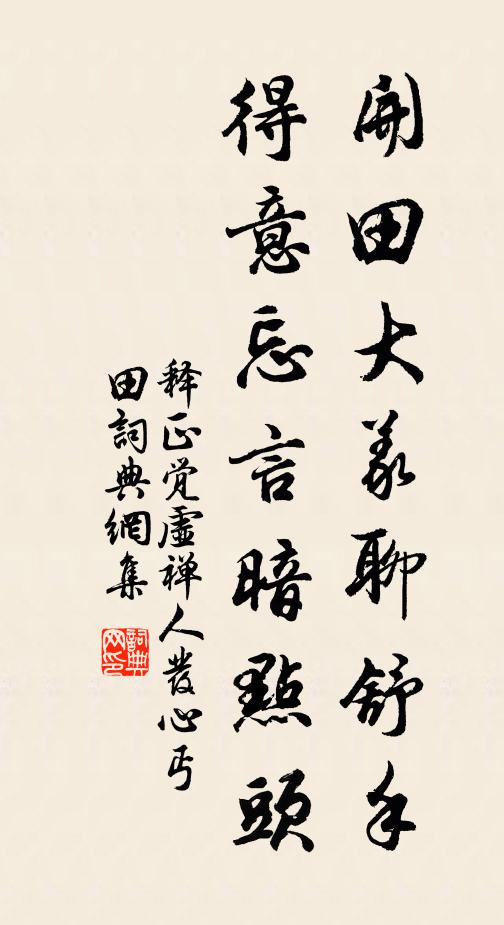 開田大義聊舒手
得意忘言暗點頭
释正觉虛禅人發心丐
田詞典網集
詞典网印